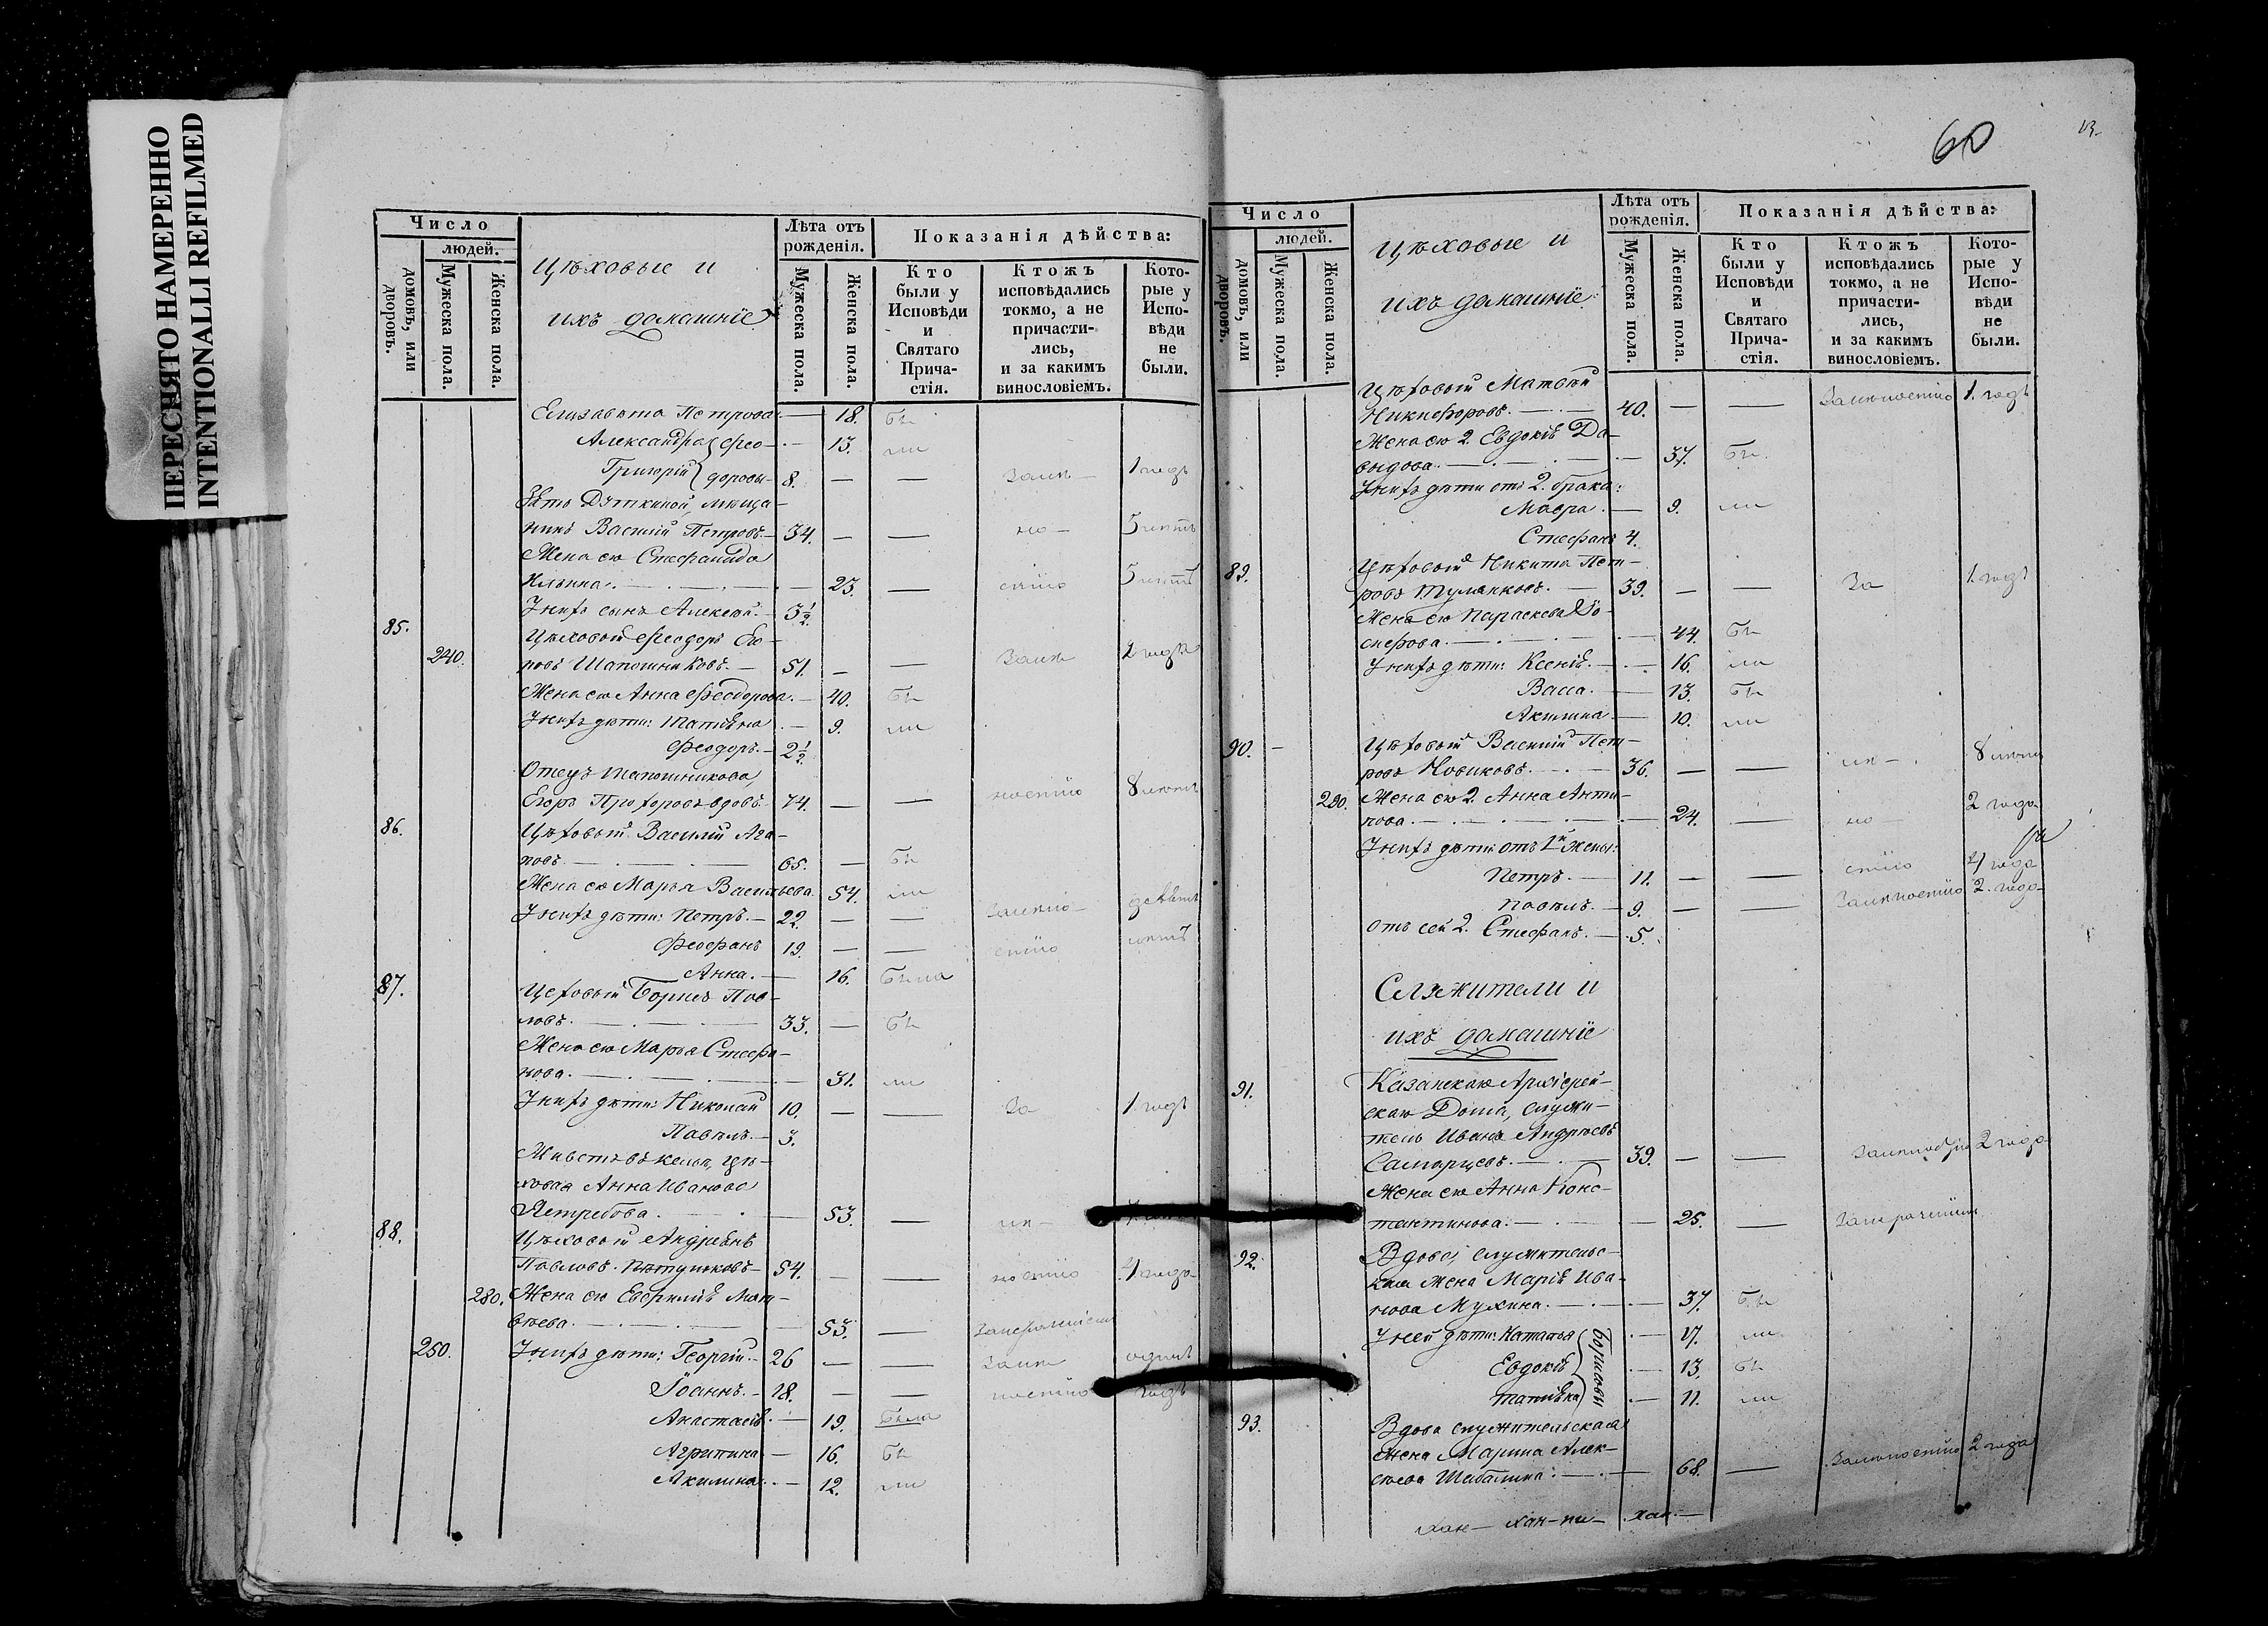 ПЕРЕСНЯТО НАМЕРЕННО
INTENTIONALLI REFILMED
Число
людей.
домовъ, или дворовъ.
Мужеска пола.
Женска пола.
Цѣховые и
ихъ домашніе
Лѣта отъ рожденія.
Мужеска пола.
Женска пола.
Показанія дѣйства:
Кто были у Исповѣди и Святаго Прича-стія.
Ктожъ исповѣдались токмо, а не причасти-лись, и за какимъ винословіемъ.
Кото-рые у Испо-вѣди не были.
Елизавета Петрова — 18. бы
Александра Фео- — 13. ли
Григорій доровы — 8. — — 1 годъ
Зять мѣща-
нинъ Василій Петровъ. — 34. — — но — 5 лѣтъ
Жена ею Стефанида
Ильина. — 23. — стію 5 лѣтъ
У нихъ сынъ Алексѣй. — 3½
85. Цѣховой Феодоръ Его-
240. ровъ Шапошниковъ. — 51. — — 2 года
Жена ею Анна Феодорова. — 40. бы
У нихъ дѣти: Татіана — 9. ли
Феодоръ. — 2½
Отецъ Шапошникова,
Егоръ Прохоровъ вдовъ. 74. — — ностію 8 лѣтъ
86. Цѣховой Василій Ага-
повъ. — 65. — бы
Жена ею Марья Васильева. 54. ли
У нихъ дѣти: Петръ. — 22. — — девять
Феофанъ 19. — — стію лѣтъ
Анна. — 16. была
87. Цеховой Борисъ Пав-
ловъ. — 33. — бы
Жена ею Марья Стефа-
нова. — 31. ли
У нихъ дѣти: Николай 10. — — За 1. годъ
Павелъ. — 3.
цѣ-
ховая Анна Иванова
Ястребова. — 53. —
88. Цѣховой Андреанъ
Павловъ Пѣтуховъ — 54. — — ностію 4 года
280. Жена ею Евфимія Мат-
вѣева. — 53. —
250. У нихъ дѣти: Георгій. — 26 — — одинъ
Іоаннъ. — 18. — — ностію годъ
Анастасія. — 19. была
Агрипина — 16. бы
Акилина. — 12. ли
60
Число
людей.
домовъ, или дворовъ.
Мужеска пола.
Женска пола.
Цѣховые и
ихъ домашніе
Лѣта отъ рожденія.
Мужеска пола.
Женска пола.
Показанія дѣйства:
Кто были у Исповѣди и Святаго Прича-стія.
Ктожъ исповѣдались токмо, а не причасти-лись, и за какимъ винословіемъ.
Кото-рые у Испо-вѣди не были.
Цѣховой Матвѣй
Никифоровъ. — 40. — — 1. годъ
Жена ею 2. Евдокія Да-
выдова. — 37. бы.
У нихъ дѣти отъ 2. брака:
Мавра. — 9. ли
Стефанъ 4.
89. Цѣховой Никита Пет-
ровъ — 39. — — За 1. годъ
Жена ею Параскева Іо-
сифова. — 44. бы
У нихъ дѣти: Ксенія. — 16. ли
Васса. — 13. бы
Акилина. — 10. ли
90. — Цѣховой Василій Пет-
ровъ Новиковъ. — 36. — — 8 лѣтъ
290. Жена ею 2. Анна Анти-
пова. — 24. — но — 2 года
У нихъ дѣти отъ 1й жены:
Петръ. — 11. — — стію 4 года
Павелъ. — 9. — — 2. года
отъ сей 2. Стефанъ. — 5.
Служители и
ихъ домашніе
91. Казанскаго Архіерей-
скаго Дома, служи-
тель Иванъ Андреевъ
— 39. — — 2 года
Жена ею Анна Конс-
тантинова. — 25. —
92. Вдова, служительс-
кая жена Марія Ива-
нова Мухина. — 37. бы
У ней дѣти: Наталья — 17. ли
Евдокія — 13. бы
Татіана — 11. ли
Борисовы
93. Вдова служительская
жена Марина Алек-
сѣева Шабалина. — 68. — 2 года